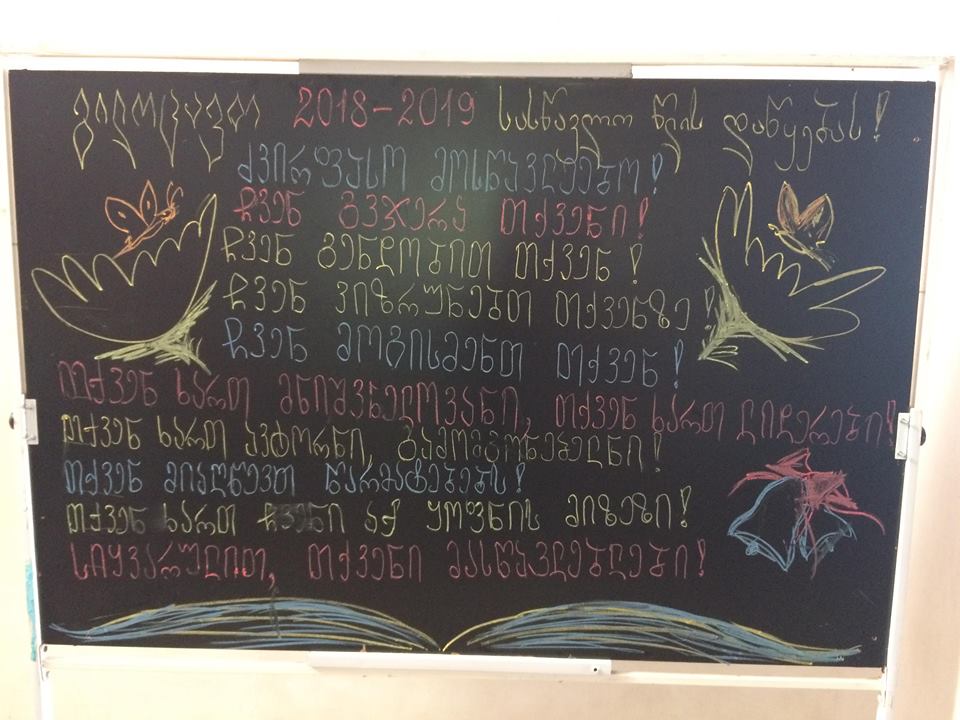 გილოცავთ 2018-2019 სასწავლო წლის დაწყებას!
ძვირფასო მოსწავლეებო!
ჩვენ გვჯერა თქვენი!
ჩვენ გენდობით თქვენ!
ჩვენ ვიზრუნებთ თქვენზე!
ჩვენ მოგისმენთ თქვენ!
თქვენ ხართ მნიშვნელოვანი, თქვენ ხართ ლიდერები!
თქვენ ხართ ავტორნი, გამომგონებელნი!
თქვენ მიაღწევთ წარმატებებს!
თქვენ ხართ ჩვენი აქ ყოფნის მიზეზი!
სიყვარულით, თქვენი მასწავლებლები!